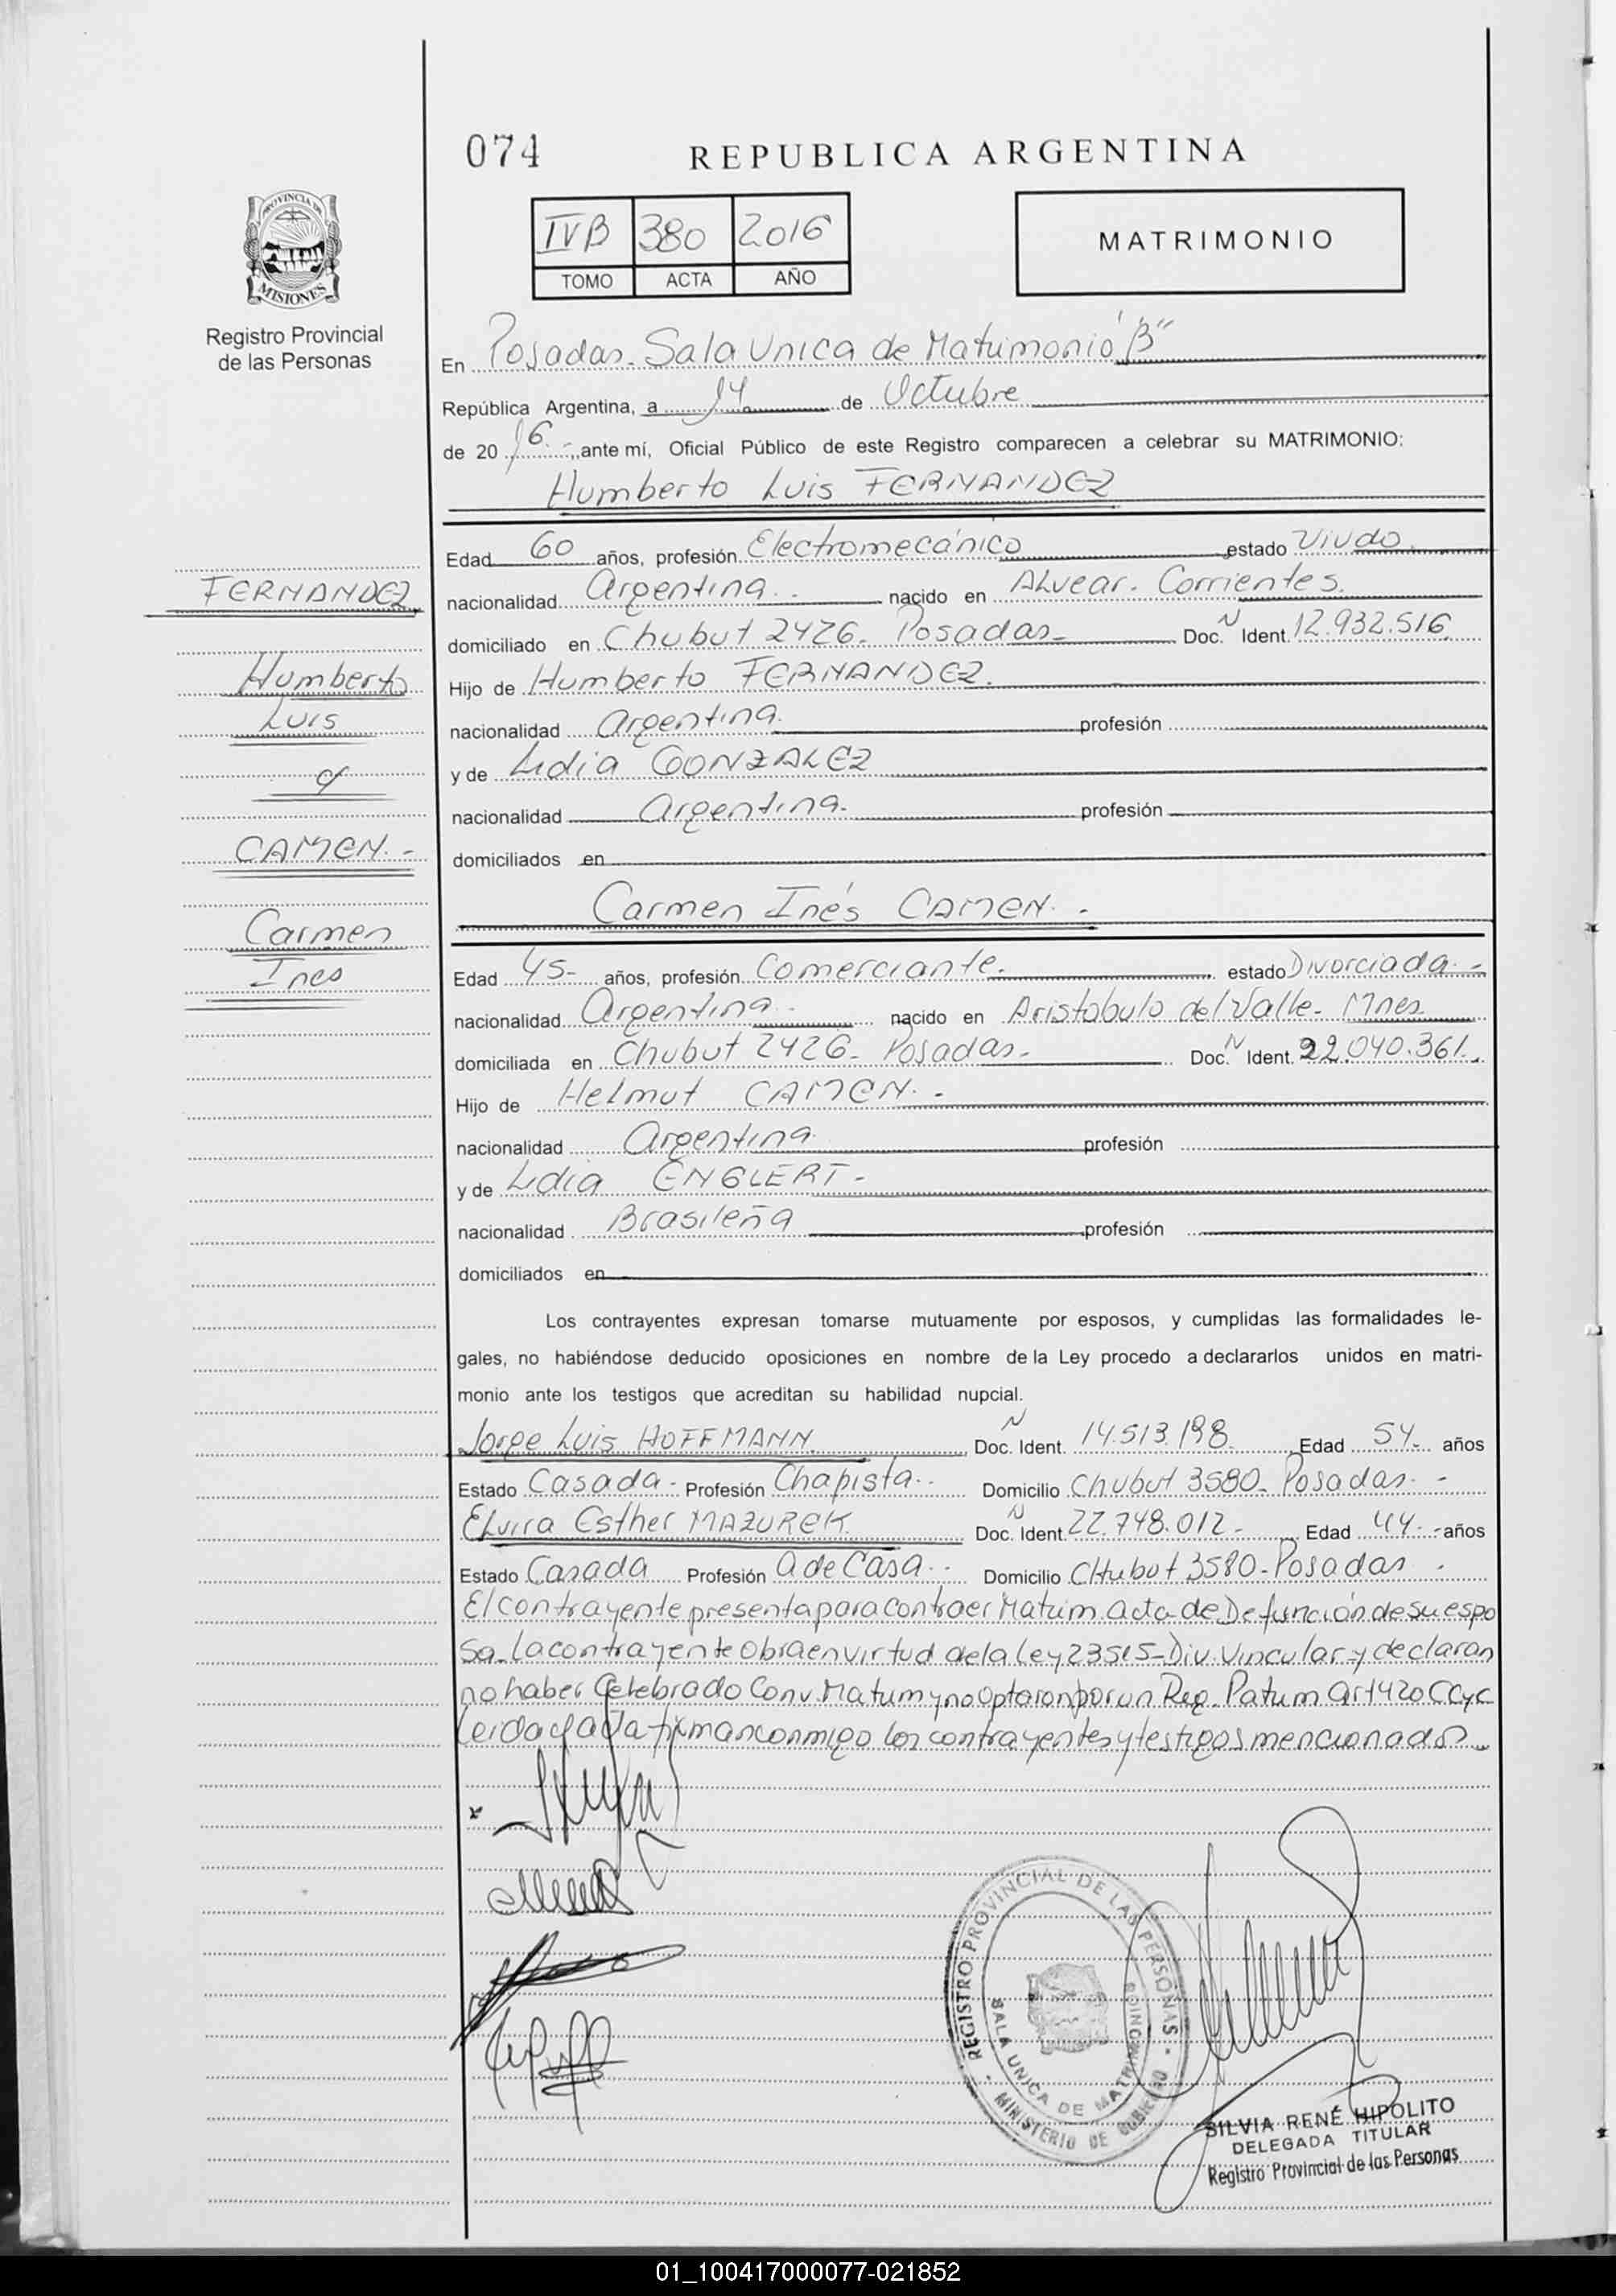 074
REPUBLICA ARGENTINA
PROVINCIA DE
MISIONES
Registro Provincial
de las Personas
IVB 380 2016
TOMO ACTA AÑO
MATRIMONIO
En Posadas. Sala Unica de Matrimonio "B"
República Argentina, a 14 de Octubre
de 2016.-, ante mí, Oficial Público de este Registro comparecen a celebrar su MATRIMONIO:
Humberto Luis FERNANDEZ
Edad 60 años, profesión Electromecánico estado Viudo.
FERNANDEZ
nacionalidad Argentina.- nacido en Alvear. Corrientes.
domiciliado en Chubut 2426. Posadas- Doc. N Ident. 12.932.516
Humberto
Hijo de Humberto FERNANDEZ.
Luis
nacionalidad Argentina. profesión
y
y de Lidia GONZALEZ
nacionalidad Argentina. profesión
CAMEN.-
domiciliados en
Carmen Inés CAMEN.-
Carmen
Ines
Edad 45- años, profesión Comerciante. estado Divorciada.-
nacionalidad Argentina.- nacido en Aristobulo del Valle- Mnes
domiciliada en Chubut 2426- Posadas- Doc. N Ident. 22.040.361.
Hijo de Helmut CAMEN.-
nacionalidad Argentina. profesión
y de Lidia ENGLERT-
nacionalidad Brasileña profesión
domiciliados en
Los contrayentes expresan tomarse mutuamente por esposos, y cumplidas las formalidades le-
gales, no habiéndose deducido oposiciones en nombre de la Ley procedo a declararlos unidos en matri-
monio ante los testigos que acreditan su habilidad nupcial.
Jorge Luis HOFFMANN. Doc. N Ident. 14.513.198 Edad 54.- años
Estado Casada- Profesión Chapista.- Domicilio Chubut 3580- Posadas.-
Elvira Esther MAZUREK Doc. N Ident. 22.748.012- Edad 44.- años
Estado Casada Profesión A de Casa.- Domicilio CHubut 3580-Posadas.
El contrayente presenta para contraer Matrim. acta de Defunción de su espo
sa. La contrayente obra en virtud de la Ley 23515-Div. Vincular-y declaran
no haber Celebrado Conv. Matrim y no optaron por un Reg. Patrim Art 420 CCyC
Leida el acta firman conmigo los contrayentes y testigos mencionados
REGISTRO PROVINCIAL DE LAS PERSONAS
SALA UNICA DE MATRIMONIO
MINISTERIO DE GOBIERNO
SILVIA RENÉ HIPOLITO
DELEGADA TITULAR
Registro Provincial de las Personas
01_100417000077-021852